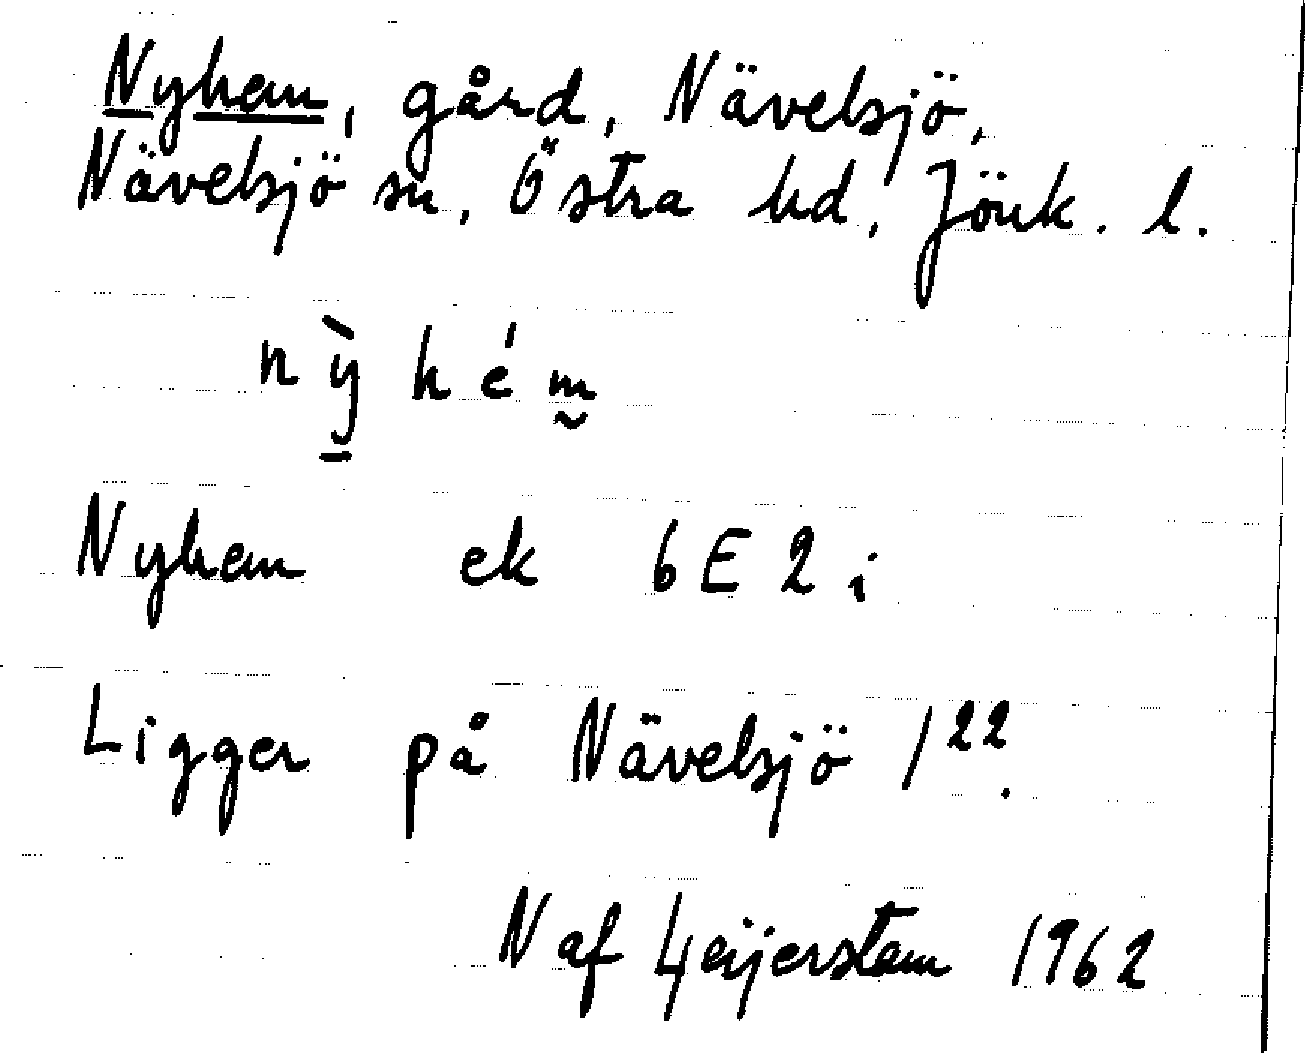 Nyhem, gård, Nävelsjö,
Nävelsjö sn, Östra hd, Jönk. l.
nỳ̠ hém̰
Nyhem ek 6E2i
Ligger på Nävelsjö 1²².
N af Geijerstam 1962